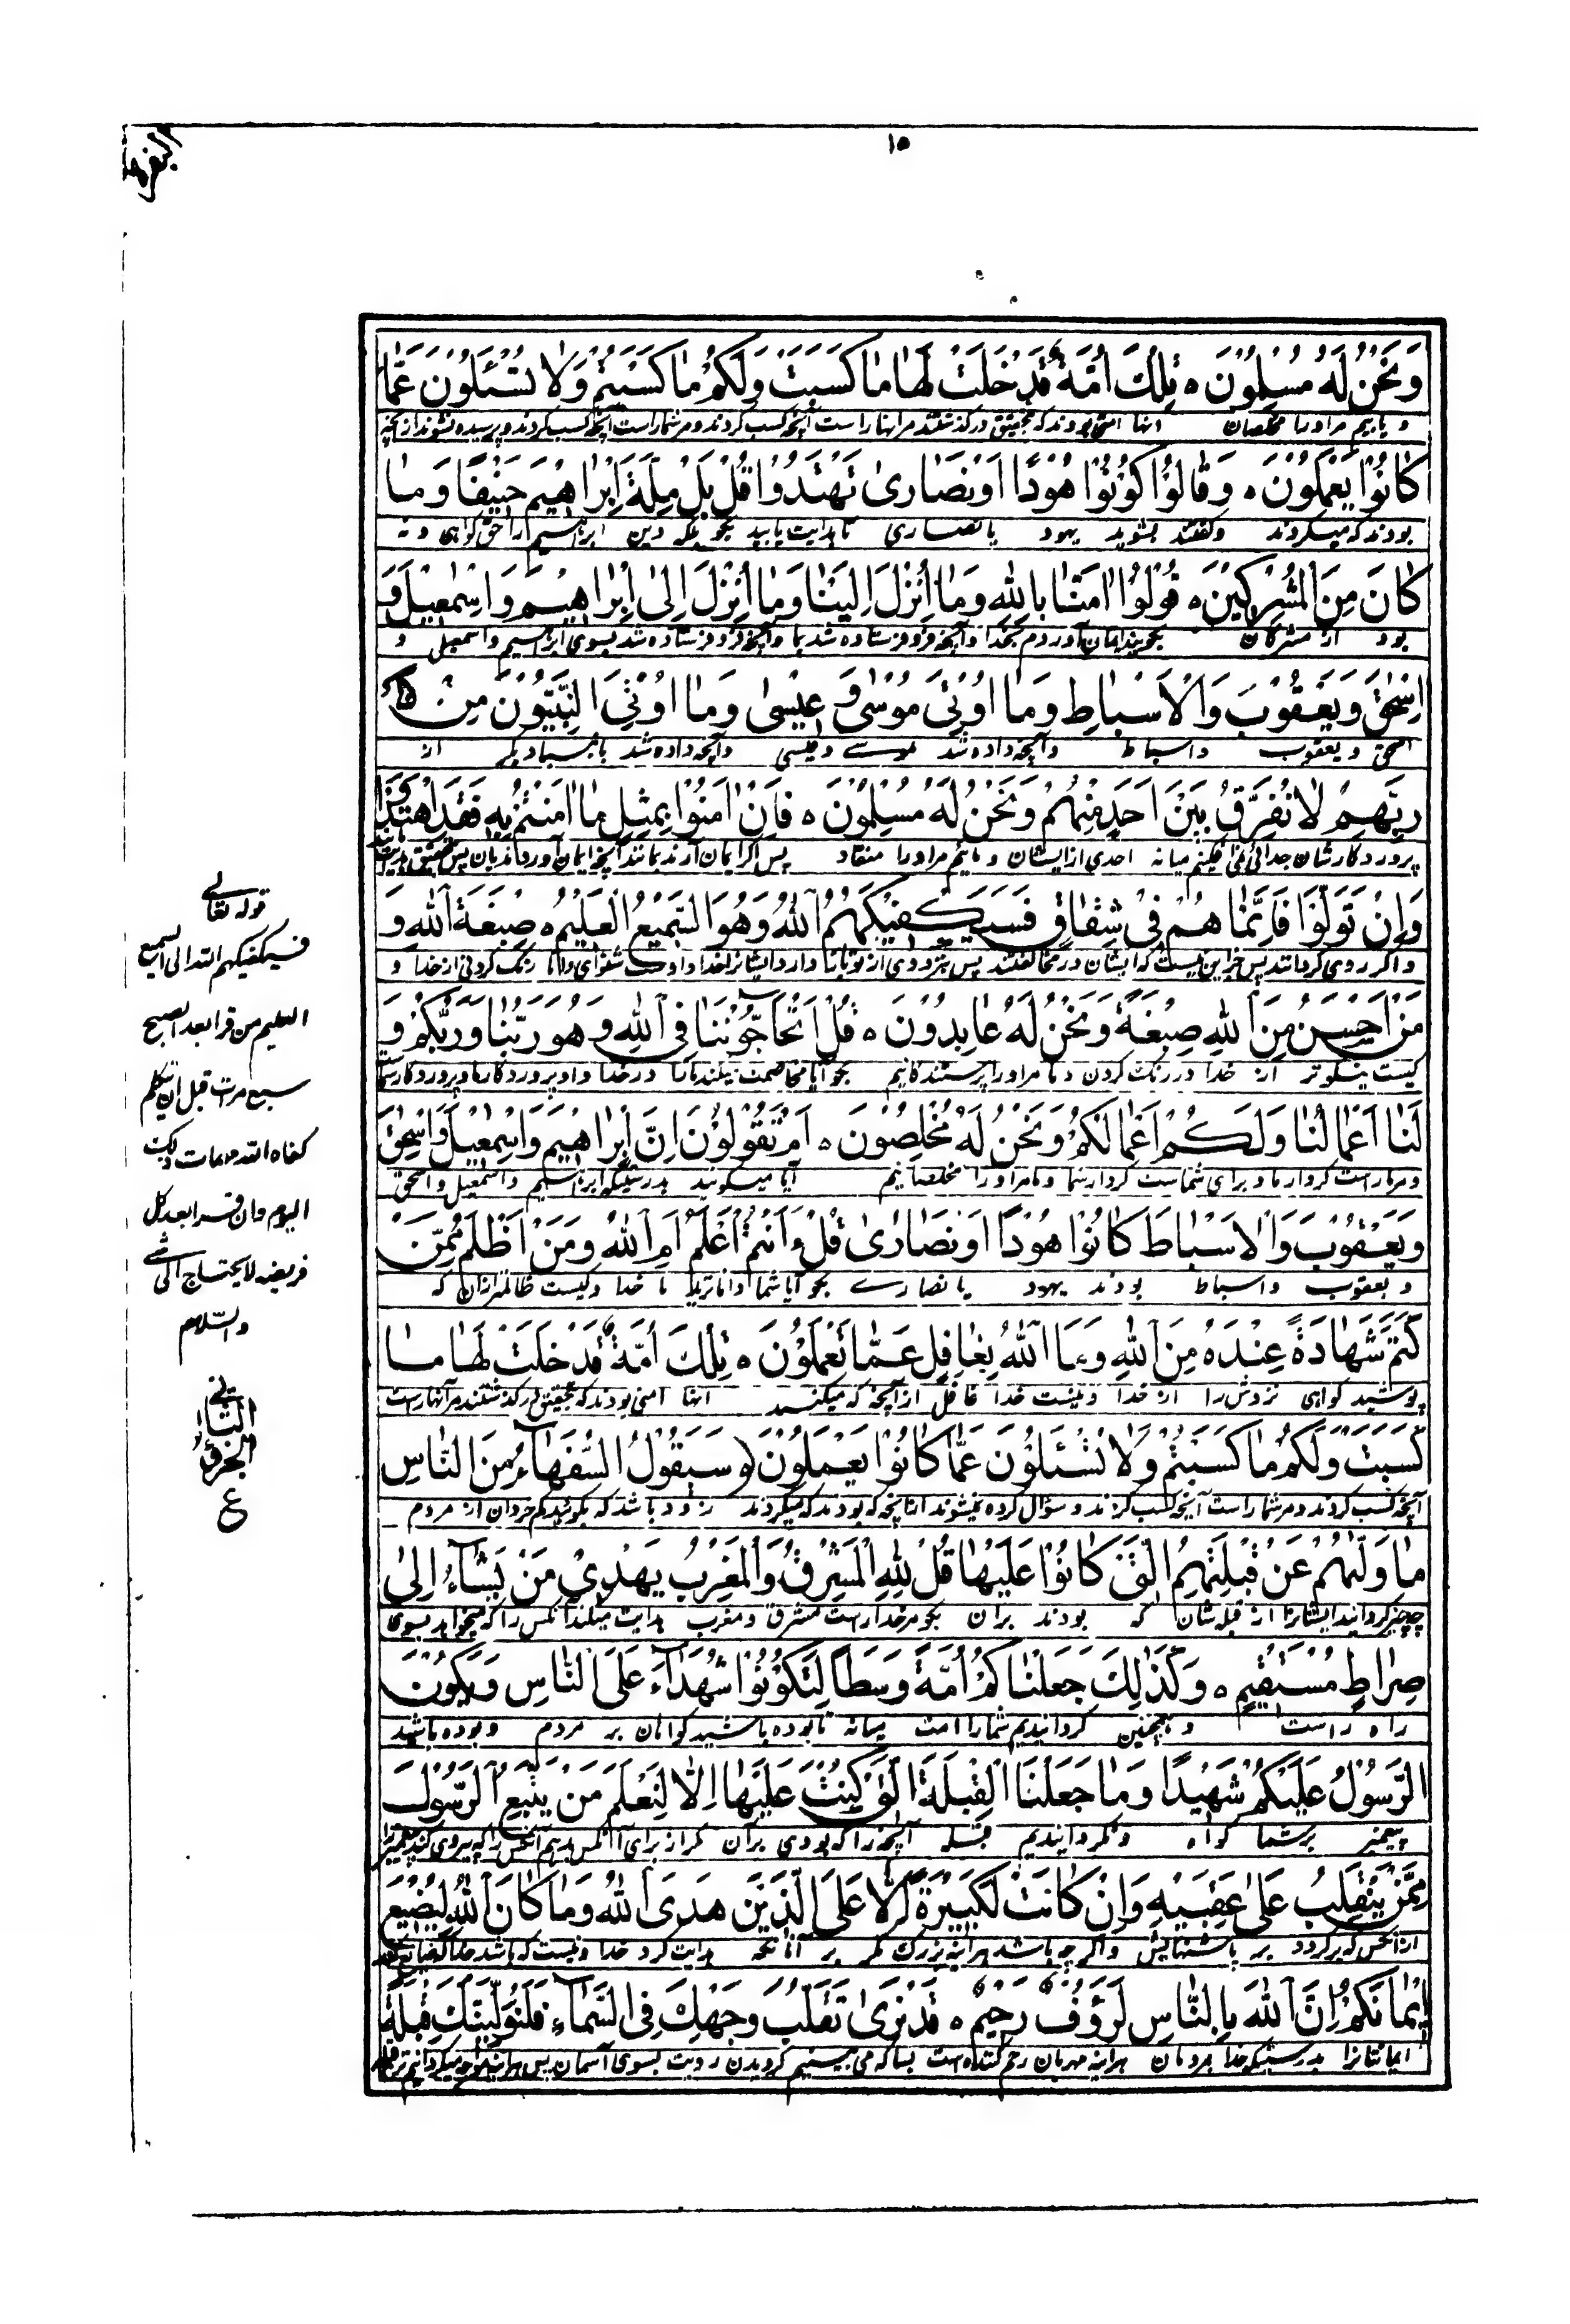 ١٥
البقره
وَنَحْنُ لَهُ مُسْلِمُونَ ه تِلْكَ أُمَّةٌ قَدْ خَلَتْ لَهَا مَا كَسَبَتْ وَلَكُمْ مَا كَسَبْتُمْ وَلَا تُسْئَلُونَ عَمَّا
و مائیم مر او را مخلصان اینها امتی بودند که بتحقیق درگذشتند مر اینها راست آنچه کسب کردند و مر شما راست آنچه کسب کردند و پرسیده نشوند از آنچه
كَانُوا يَعْمَلُونَ ه وَقَالُوا كُونُوا هُودًا أَوْ نَصَارَىٰ تَهْتَدُوا قُلْ بَلْ مِلَّةَ إِبْرَاهِيمَ حَنِيفًا وَمَا
بودند که میکردند و گفتند بشوید یهود یا نصاری تا هدایت یابید بگو بلکه دین ابراهیم را حق گواهی و نه
كَانَ مِنَ الْمُشْرِكِينَ ه قُولُوا آمَنَّا بِاللَّهِ وَمَا أُنْزِلَ إِلَيْنَا وَمَا أُنْزِلَ إِلَىٰ إِبْرَاهِيمَ وَإِسْمٰعِيلَ وَ
بود از مشرکان بگویند ایمان آوردم بخدا و آنچه فرو فرستاده شد بما و آنچه فرو فرستاده شد بسوی ابراهیم و اسمعیل و
إِسْحٰقَ وَيَعْقُوبَ وَالْأَسْبَاطِ وَمَا أُوتِيَ مُوسَىٰ وَ عِيسَىٰ وَمَا أُوتِيَ النَّبِيُّونَ مِنْ
اسحق و یعقوب و اسباط و آنچه داده شد موسے و عیسی و آنچه داده شد بانبیاء دیگر از
رَبِّهِمْ لَا نُفَرِّقُ بَيْنَ أَحَدٍ مِنْهُمْ وَنَحْنُ لَهُ مُسْلِمُونَ ه فَإِنْ آمَنُوا بِمِثْلِ مَا آمَنْتُمْ بِهِ فَقَدِ اهْتَدَوْا
پروردکارشان جدائی نمی فکنیم میانه احدی از ایشان و مائیم مر او را منقاد پس اگر ایمان آرند بمانند آنچه ایمان آوردند بان پس بتحقیق
وَإِنْ تَوَلَّوْا فَإِنَّمَا هُمْ فِي شِقَاقٍ فَسَيَكْفِيكَهُمُ اللَّهُ وَهُوَ السَّمِيعُ الْعَلِيمُ ه صِبْغَةَ اللَّهِ وَ
و اگر روی گردانند پس جز این نیست که ایشان در مخالفتند پس بزودی از تو باز دارد ایشانرا خدا و اوست شنوای دانا رنگ کردنی از خدا و
مَنْ أَحْسَنُ مِنَ اللَّهِ صِبْغَةً وَنَحْنُ لَهُ عَابِدُونَ ه قُلْ أَتُحَاجُّونَنَا فِي اللَّهِ وَهُوَ رَبُّنَا وَرَبُّكُمْ وَ
کیست نیکوتر از خدا در رنگ کردن و ما مر او را پرستندگانیم بگو آیا مخاصمت میکنید با ما در خدا و او پروردکار ما و پروردکار شما
لَنَا أَعْمَالُنَا وَلَكُمْ أَعْمَالُكُمْ وَنَحْنُ لَهُ مُخْلِصُونَ ه أَمْ تَقُولُونَ إِنَّ إِبْرَاهِيمَ وَإِسْمٰعِيلَ وَإِسْحٰقَ
و مر ما راست کردار ما و برای شماست کردار شما و ما مر او را مخلصانیم آیا میگوئید بدرستیکه ابراهیم و اسمعیل و اسحق
وَيَعْقُوبَ وَالْأَسْبَاطَ كَانُوا هُودًا أَوْ نَصَارَىٰ قُلْ ءَأَنْتُمْ أَعْلَمُ أَمِ اللَّهُ وَمَنْ أَظْلَمُ مِمَّنْ
و یعقوب و اسباط بودند یهود یا نصارے بگو آیا شما داناترید یا خدا و کیست ظالمتر از آن که
كَتَمَ شَهَادَةً عِنْدَهُ مِنَ اللَّهِ وَمَا اللَّهُ بِغَافِلٍ عَمَّا تَعْمَلُونَ ه تِلْكَ أُمَّةٌ قَدْ خَلَتْ لَهَا مَا
پوشید گواهی نزدش را از خدا و نیست خدا غافل از آنچه که میکنید اینها امتی بودند که بتحقیق درگذشتند مر آنها راست
كَسَبَتْ وَلَكُمْ مَا كَسَبْتُمْ وَلَا تُسْئَلُونَ عَمَّا كَانُوا يَعْمَلُونَ ه سَيَقُولُ السُّفَهَاءُ مِنَ النَّاسِ
آنچه کسب کردند و مر شما راست آنچه کسب کردند و سؤال کرده نمیشوند از آنچه که بودند که میکردند زود باشد که بگویند کم خردان از مردم
مَا وَلَّيٰهُمْ عَنْ قِبْلَتِهِمُ الَّتِي كَانُوا عَلَيْهَا قُلْ لِلَّهِ الْمَشْرِقُ وَالْمَغْرِبُ يَهْدِي مَنْ يَشَاءُ إِلَىٰ
چه چیز گردانید ایشانرا از قبله شان که بودند بر آن بگو مر خدا راست مشرق و مغرب هدایت میکند آنکس را که میخواهد بسوی
صِرَاطٍ مُسْتَقِيمٍ ه وَكَذَٰلِكَ جَعَلْنَاكُمْ أُمَّةً وَسَطًا لِتَكُونُوا شُهَدَاءَ عَلَى النَّاسِ وَيَكُونَ
راه راست و همچنین گردانیدیم شما را امت میانه تا بوده باشید گواهان بر مردم و بوده باشد
الرَّسُولُ عَلَيْكُمْ شَهِيدًا وَمَا جَعَلْنَا الْقِبْلَةَ الَّتِي كُنْتَ عَلَيْهَا إِلَّا لِنَعْلَمَ مَنْ يَتَّبِعُ الرَّسُولَ
پیغمبر بر شما گواه و نگردانیدیم قبله آنچه را که بودی بر آن مگر از برای آنکه بدانیم آنکس را که پیروی کند
مِمَّنْ يَنْقَلِبُ عَلَىٰ عَقِبَيْهِ وَإِنْ كَانَتْ لَكَبِيرَةً إِلَّا عَلَى الَّذِينَ هَدَى اللَّهُ وَمَا كَانَ اللَّهُ لِيُضِيعَ
از آنکس که برگردد بر پاشنهایش و اگر چه باشد هر اینه بزرگ مگر بر آنانکه هدایت کرد خدا و نیست که باشد خدا که ضایع
إِيمَانَكُمْ إِنَّ اللَّهَ بِالنَّاسِ لَرَؤُفٌ رَحِيمٌ ه قَدْ نَرَىٰ تَقَلُّبَ وَجْهِكَ فِي السَّمَاءِ فَلَنُوَلِّيَنَّكَ قِبْلَةً
ایمانتانرا بدرستیکه خدا بمردمان هر اینه مهربان رحم کننده است بسا که می بینیم گردیدن رویت بسوی آسمان پس هر اینه
قوله تعالے
فسیکفیکهم الله الی السمیع
العلیم من قرا بعد الصبح
سبع مرات قبل ان یتکلم
کفاه الله مهمات ذلک
الیوم وان قرا بعد کل
فریضه لا یحتاج الی شیء
والسلام
الجزؤ
الثانی
ع